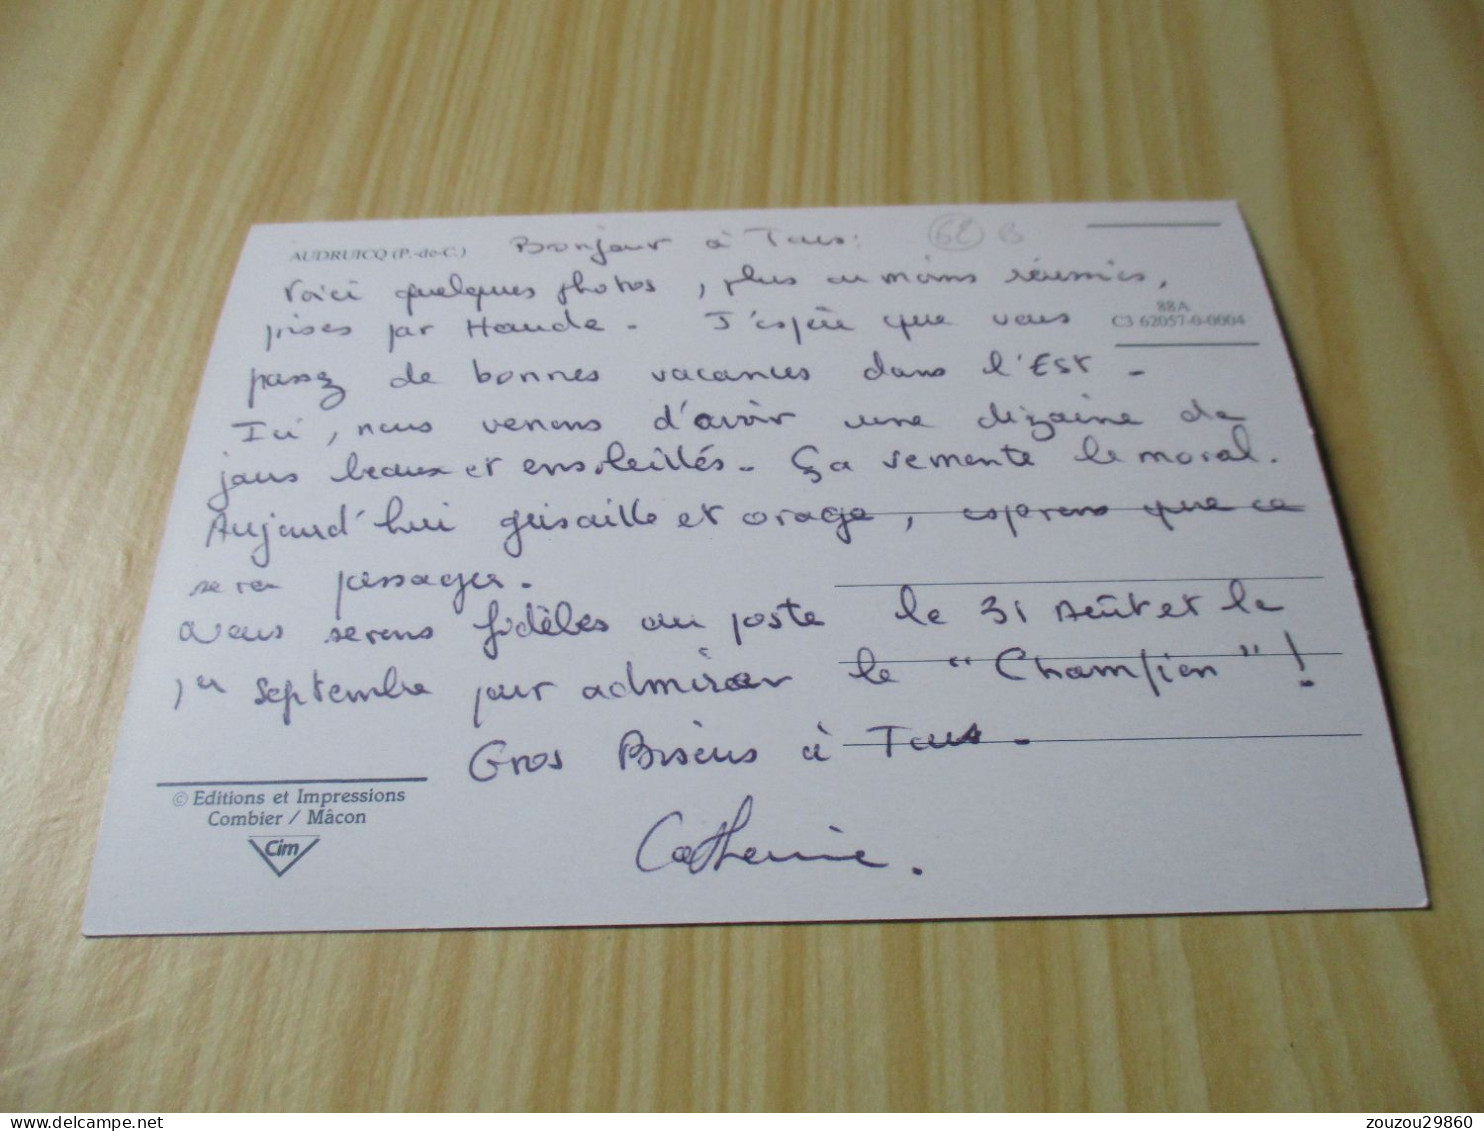 AUDRUICQ (P.-de-C.)
Bonjour à Tous:
68 B
Voici quelques photos, plus ou moins réussies,
88A
C3 62057-0-0004
prises par Haude. J'espère que vous
passez de bonnes vacances dans l'Est.
Ici, nous venons d'avoir une dizaine de
jours beaux et ensoleillés. Ça remonte le moral.
Aujourd'hui grisaille et orage, espérons que ce
sera passager.
Nous serons fidèles au poste le 31 Août et le
1er Septembre pour admirer le "Champion"!
Gros Bisous à Tous.
Catherine.
© Editions et Impressions
Combier / Mâcon
Cim
zouzou29860